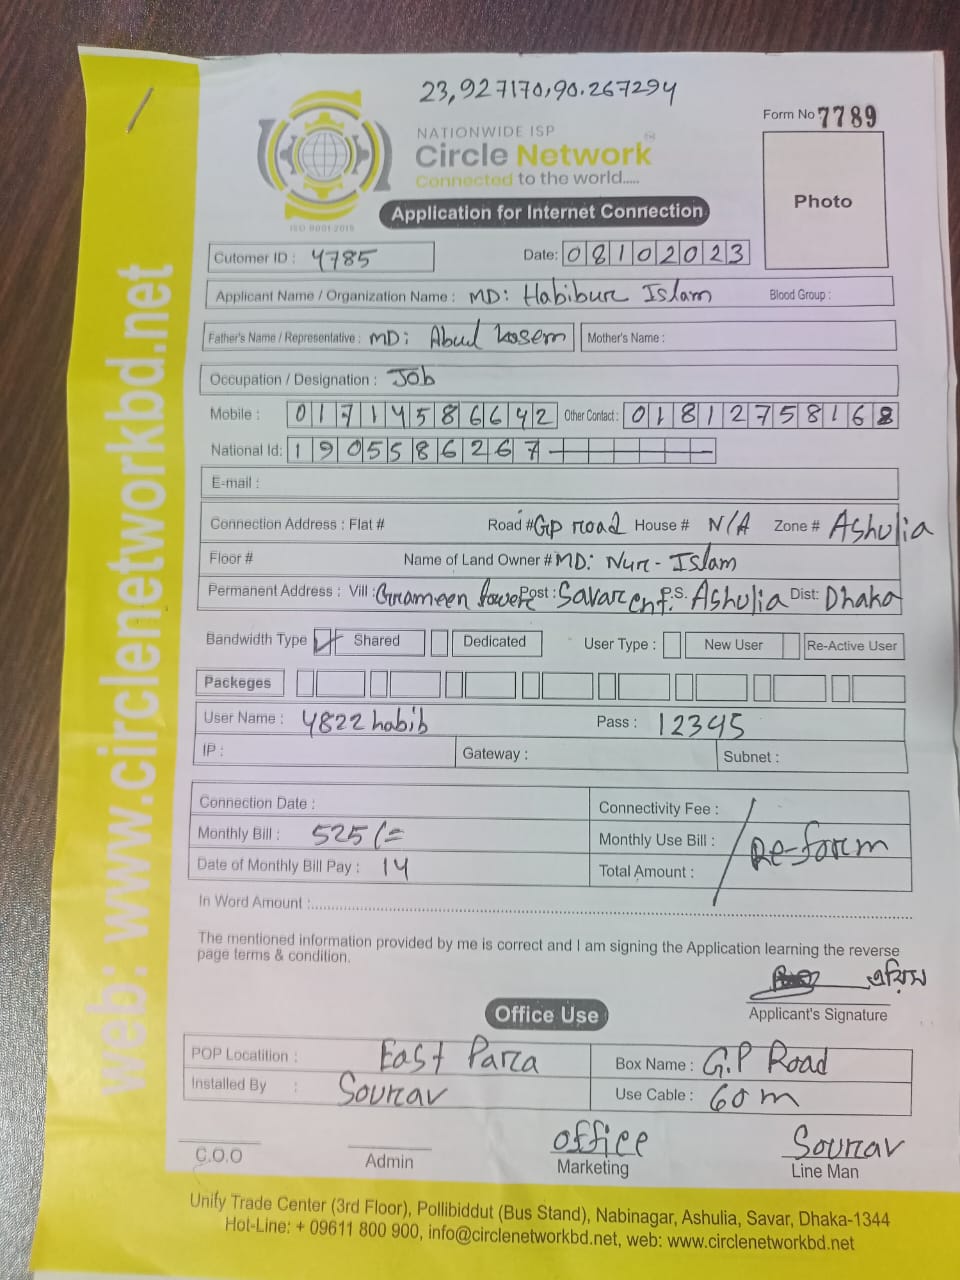 23,927170,90.267294
Form No 7789
NATIONWIDE ISP
Circle Network
Connected to the world.....
ISO 9001:2015
Photo
Application for Internet Connection
Cutomer ID : 4785 Date: 08102023
Applicant Name / Organization Name : MD: Habibur Islam Blood Group :
Father's Name / Representative : MD: Abul kosem Mother's Name :
Occupation / Designation : Job
Mobile : 01714586642 Other Contact : 01812758168
National Id: 1905586267
E-mail :
Connection Address : Flat # Road # GP road House # N/A Zone # Ashulia
Floor # Name of Land Owner # MD: Nur - Islam
Permanent Address : Vill : Grameen Post : Savar P.S. Ashulia Dist: Dhaka
Bandwidth Type Shared Dedicated User Type : New User Re-Active User
Packeges
User Name : 4822habib Pass : 12345
IP : Gateway : Subnet :
Connection Date : Connectivity Fee :
Monthly Bill : 525/= Monthly Use Bill : Re-form
Date of Monthly Bill Pay : 14 Total Amount :
In Word Amount :
The mentioned information provided by me is correct and I am signing the Application learning the reverse
page terms & condition.
Applicant's Signature
Office Use
POP Locatition : East Para Box Name : G.P Road
Installed By : Sourav Use Cable : 60m
C.O.O Admin office Marketing Sourav Line Man
Unify Trade Center (3rd Floor), Pollibiddut (Bus Stand), Nabinagar, Ashulia, Savar, Dhaka-1344
Hot-Line: + 09611 800 900, info@circlenetworkbd.net, web: www.circlenetworkbd.net
web: www.circlenetworkbd.net